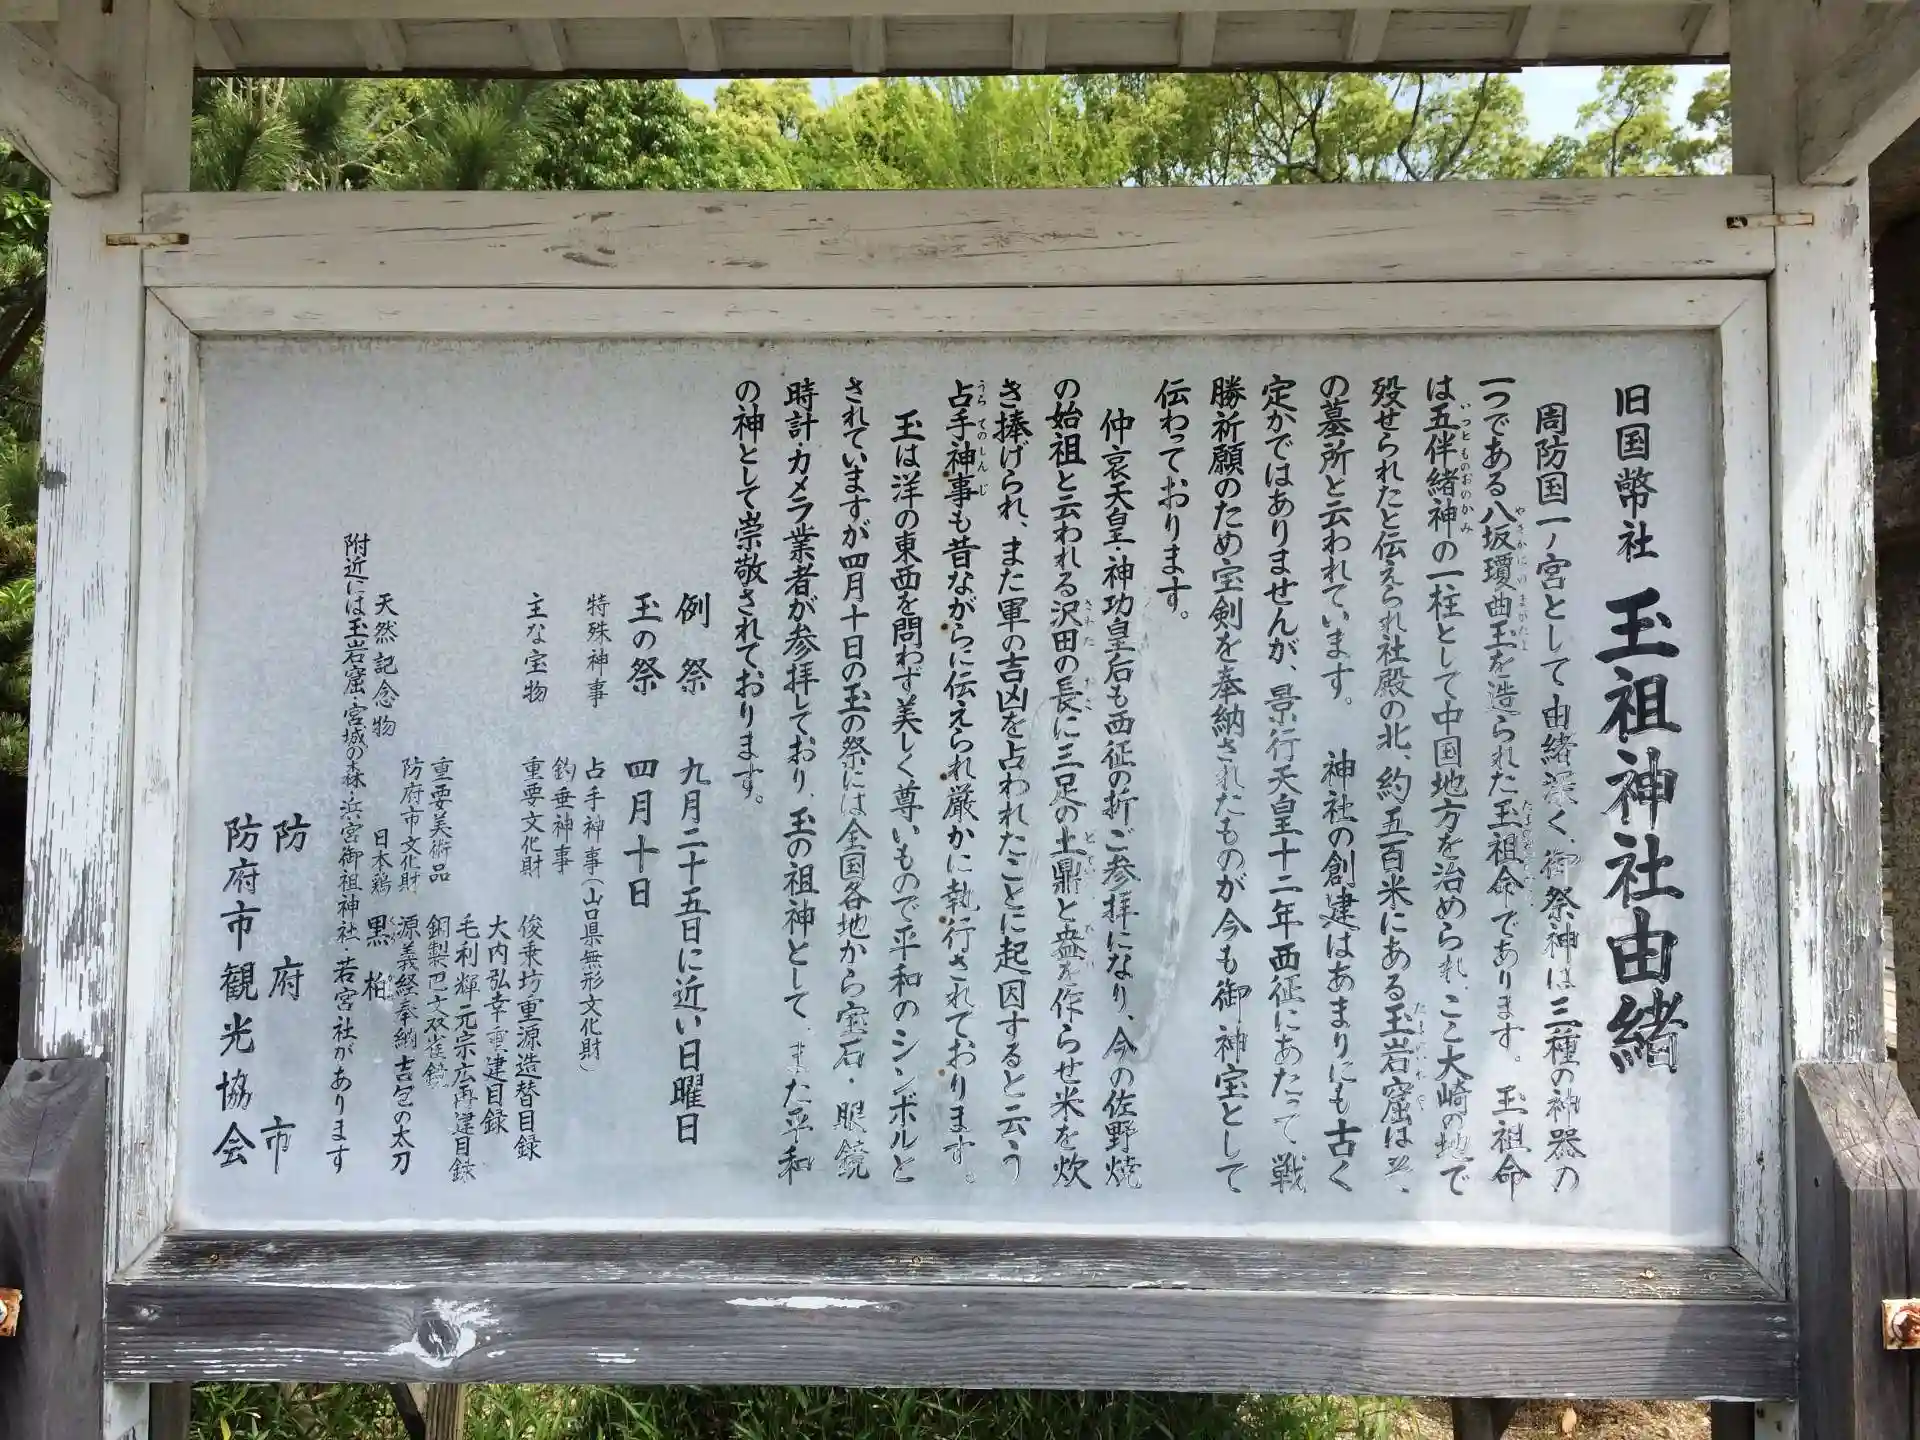 旧国幣社 玉祖神社由緒
周防国一ノ宮として由緒深く、御祭神は三種の神器の
一つである八坂瓊曲玉を造られた玉祖命であります。 玉祖命
は五伴緒神の一柱として中国地方を治められ、ここ大崎の地で
歿せられたと伝えられ社殿の北、約五百米にある玉岩窟は
の墓所と云われています。 神社の創建はあまりにも古く
定かではありませんが、景行天皇十二年西征にあたって戦
勝祈願のため宝剣を奉納されたものが今も御神宝として
伝わっております。
仲哀天皇・神功皇后も西征の折ご参拝になり、今の佐野焼
の始祖と云われる沢田の長に三足の土鼎と盎を作らせ米を炊
き捧げられ、また軍の吉凶を占われたことに起因すると云う
占手神事も昔ながらに伝えられ厳かに執行されております。
玉は洋の東西を問わず美しく尊いもので平和のシンボルと
されていますが四月十日の玉の祭には全国各地から宝石・眼鏡
時計・カメラ業者が参拝しており、玉の祖神として、また平和
の神として崇敬されております。
例祭 九月二十五日に近い日曜日
玉の祭 四月十日
特殊神事 占手神事(山口県無形文化財)
釣垂神事
主な宝物 重要文化財 俊乗坊重源造替目録
大内弘幸重建目録
毛利輝元宗広再建目録
重要美術品 銅製巴文双雀鏡
防府市文化財 源義経奉納吉包の太刀
天然記念物 日本鶏 黒柏
附近には玉岩窟・宮城の森・浜宮御祖神社 若宮社があります
防府市
防府市観光協会